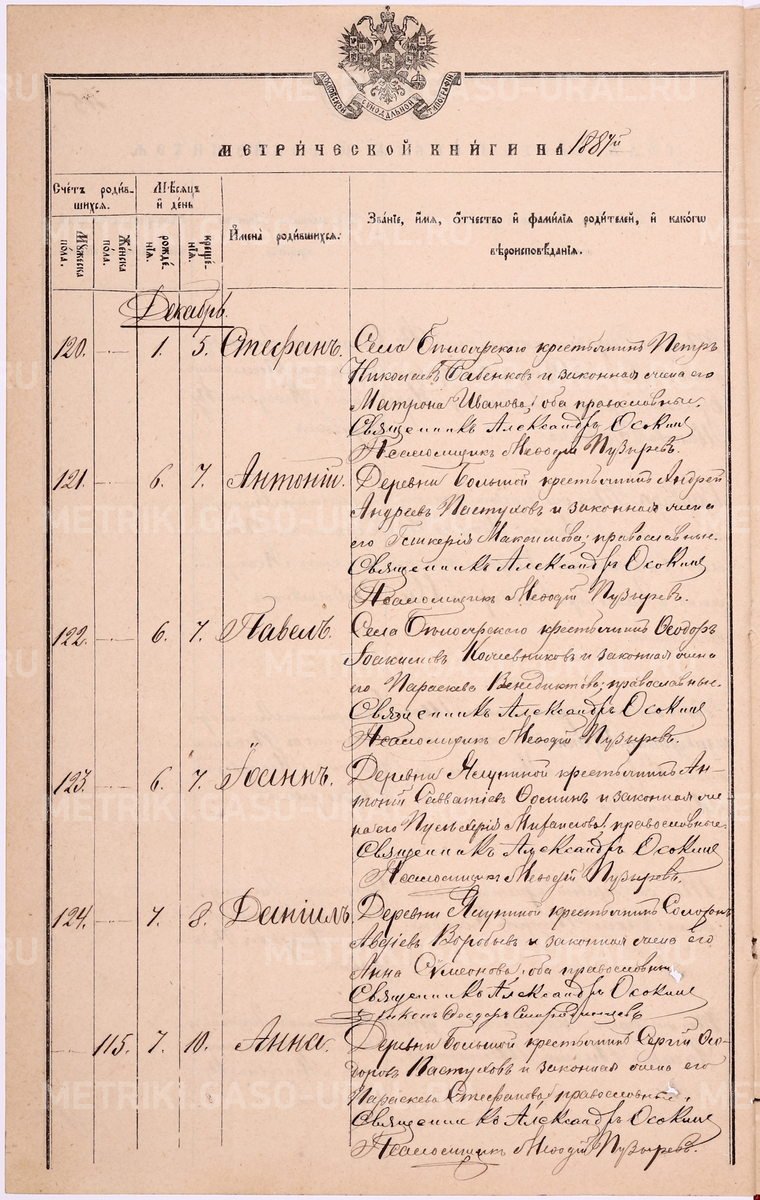 МОСКОВСКОЙ СѴНОДАЛЬНОЙ ТИПОГРАФІИ
МЕТРИ́ЧЕСКОЙ КНИ́ГИ НА 1887й
Сче́тъ роди́вшихся.
Мѣ́сяцъ и҆ де́нь
Имена̀ роди́вшихся.
Зва́ніе, и҆́мя, ѻ҆́тчество и҆ фами́лія роди́телей, и҆ како́гѡ
вѣроисповѣ́данія.
Мꙋ́жеска по́ла.
Же́нска по́ла.
рожде́нія.
креще́нія.
Декабрь.
120. 1. 5. Стефанъ. Села крестьянинъ Петръ
Николаевъ Бабенков и законная жена его
Матрона Иванова, оба православные.
Священникъ Александръ Осокинъ
Псаломщикъ Меѳодій Пузыревъ.
121. 6. 7. Антоній. Деревни Большой крестьянинъ Андрей
Андреевъ Пастуховъ и законная жена
его Гликерія Максимова; православные.
Священникъ Александръ Осокинъ
Псаломщикъ Меѳодій Пузыревъ.
122. 6. 7. Павелъ. Села крестьянинъ Ѳеодоръ
Іоакимовъ и законная жена
его Параскева Венедиктова; православные.
Священникъ Александръ Осокинъ
Псаломщикъ Меѳодій Пузыревъ.
123. 6. 7. Іоаннъ. Деревни Ялуниной крестьянинъ Ан-
тоній Савватіевъ Ѳоминъ и законная же-
на его православные.
Священникъ Александръ Осокинъ
Псаломщикъ Меѳодій Пузыревъ.
124. 7. 8. Даніилъ. Деревни Ялуниной крестьянинъ Соломонъ
Авдіевъ Воробьевъ и законная жена его
Анна Сѵмеонова, оба православные
Священникъ Александръ Осокинъ
Діаконъ Ѳеодоръ
115. 7. 10. Анна. Деревни Большой крестьянинъ Сергій Ѳео-
доровъ Пастуховъ и законная жена его
Параскева Стефанова православные.
Священникъ Александръ Осокинъ
Псаломщикъ Меѳодій Пузыревъ.
METRIKI.GASO-URAL.RU